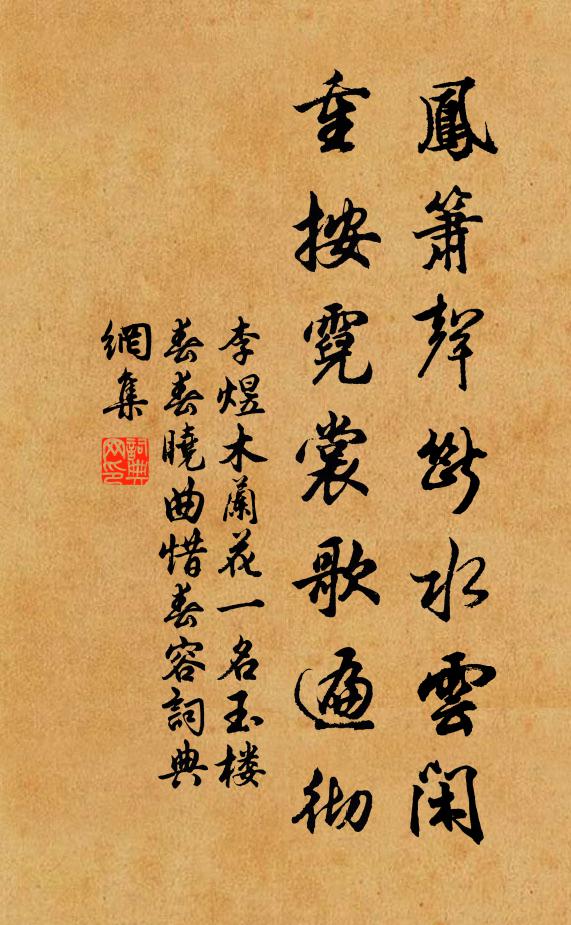 鳳簫聲斷水雲閑
重按霓裳歌遍彻
李煜木蘭花一名玉楼
春春曉曲惜春容詞典
網集
詞典网印